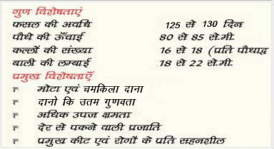 गुण विशेषताएँ
फसल की अवधि 125 से 130 दिन
पौधे की ऊँचाई 80 से 85 से.मी.
कल्लों की संख्या 16 से 18 (प्रति पौधा)
बाली की लम्बाई 18 से 22 से.मी.
प्रमुख विशेषताएँ
मोटा एवं चमकिला दाना
दानो कि उतम गुणवता
अधिक उपज क्षमता
देर से पकने वाली प्रजाति
प्रमुख कीट एवं रोगों के प्रति सहनशील